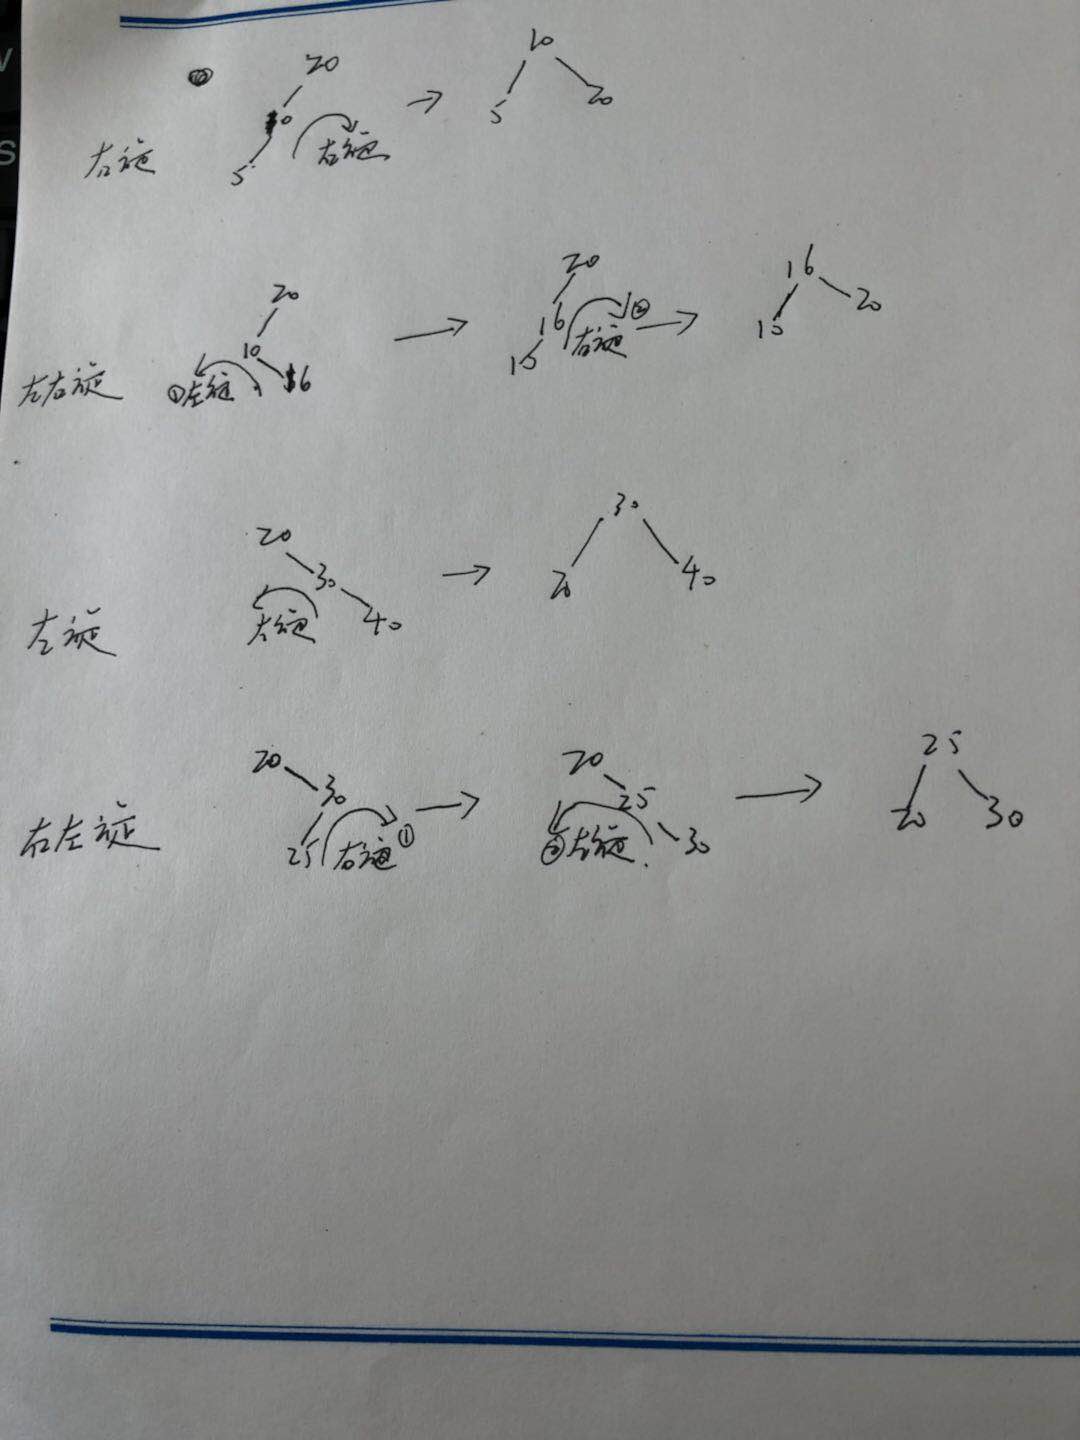 20 10
10
5 右旋 5 20
右旋
20 20 16
10 16 ② 20
左右旋 ①左旋 16 10 右旋 10
20 30
30 20 40
左旋 左旋 40
20 20 25
30 25 20 30
右左旋 25 右旋① ②左旋 30